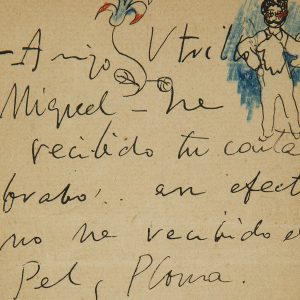 -Amigo Utrillo
Miguel - he
recibido tu carta
brabo!.. en efect
no he recibido el
Pel, Ploma.